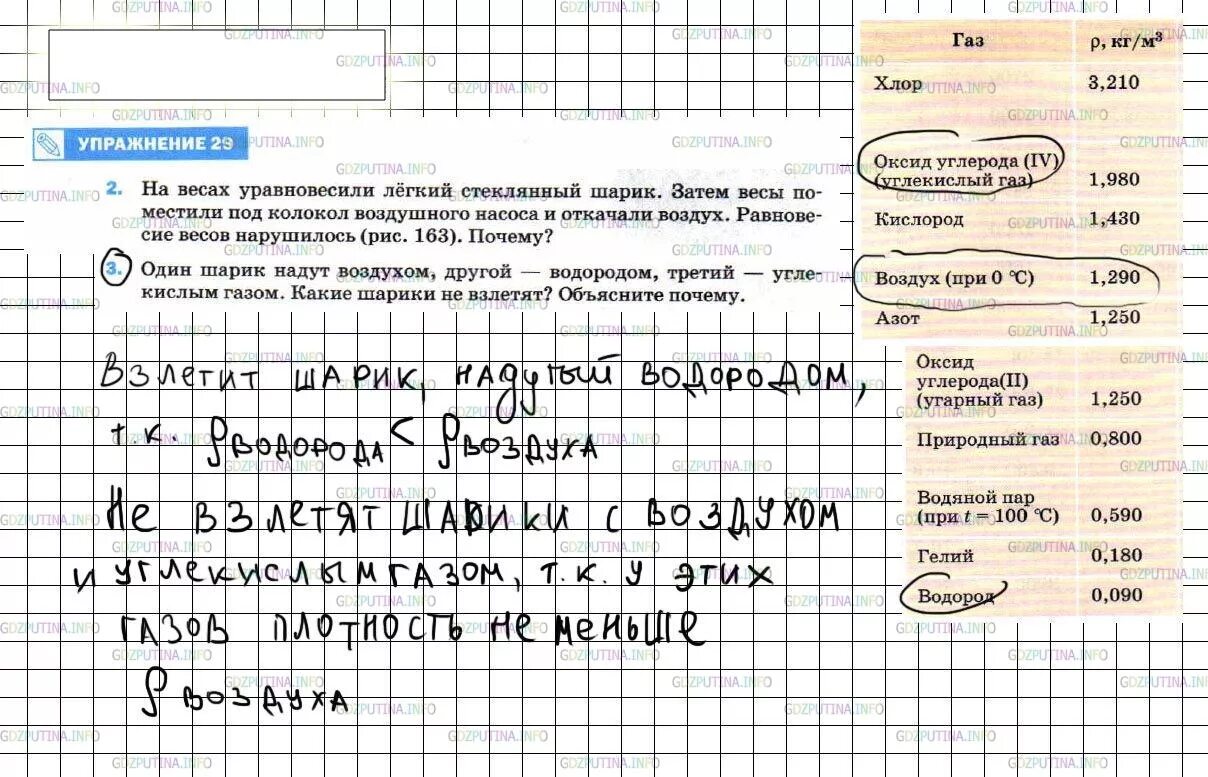 УПРАЖНЕНИЕ 29
2. На весах уравновесили лёгкий стеклянный шарик. Затем весы по-
местили под колокол воздушного насоса и откачали воздух. Равнове-
сие весов нарушилось (рис. 163). Почему?
3. Один шарик надут воздухом, другой — водородом, третий — угле-
кислым газом. Какие шарики не взлетят? Объясните почему.
Взлетит шарик, надутый водородом,
т.к. ρ водорода < ρ воздуха
Не взлетят шарики с воздухом
и углекислым газом, т.к. у этих
газов плотность не меньше
ρ воздуха
Газ ρ, кг/м³
Хлор 3,210
Оксид углерода (IV)
(углекислый газ) 1,980
Кислород 1,430
Воздух (при 0 °С) 1,290
Азот 1,250
Оксид
углерода(II)
(угарный газ) 1,250
Природный газ 0,800
Водяной пар
(при t = 100 °С) 0,590
Гелий 0,180
Водород 0,090
GDZPUTINA.INFO